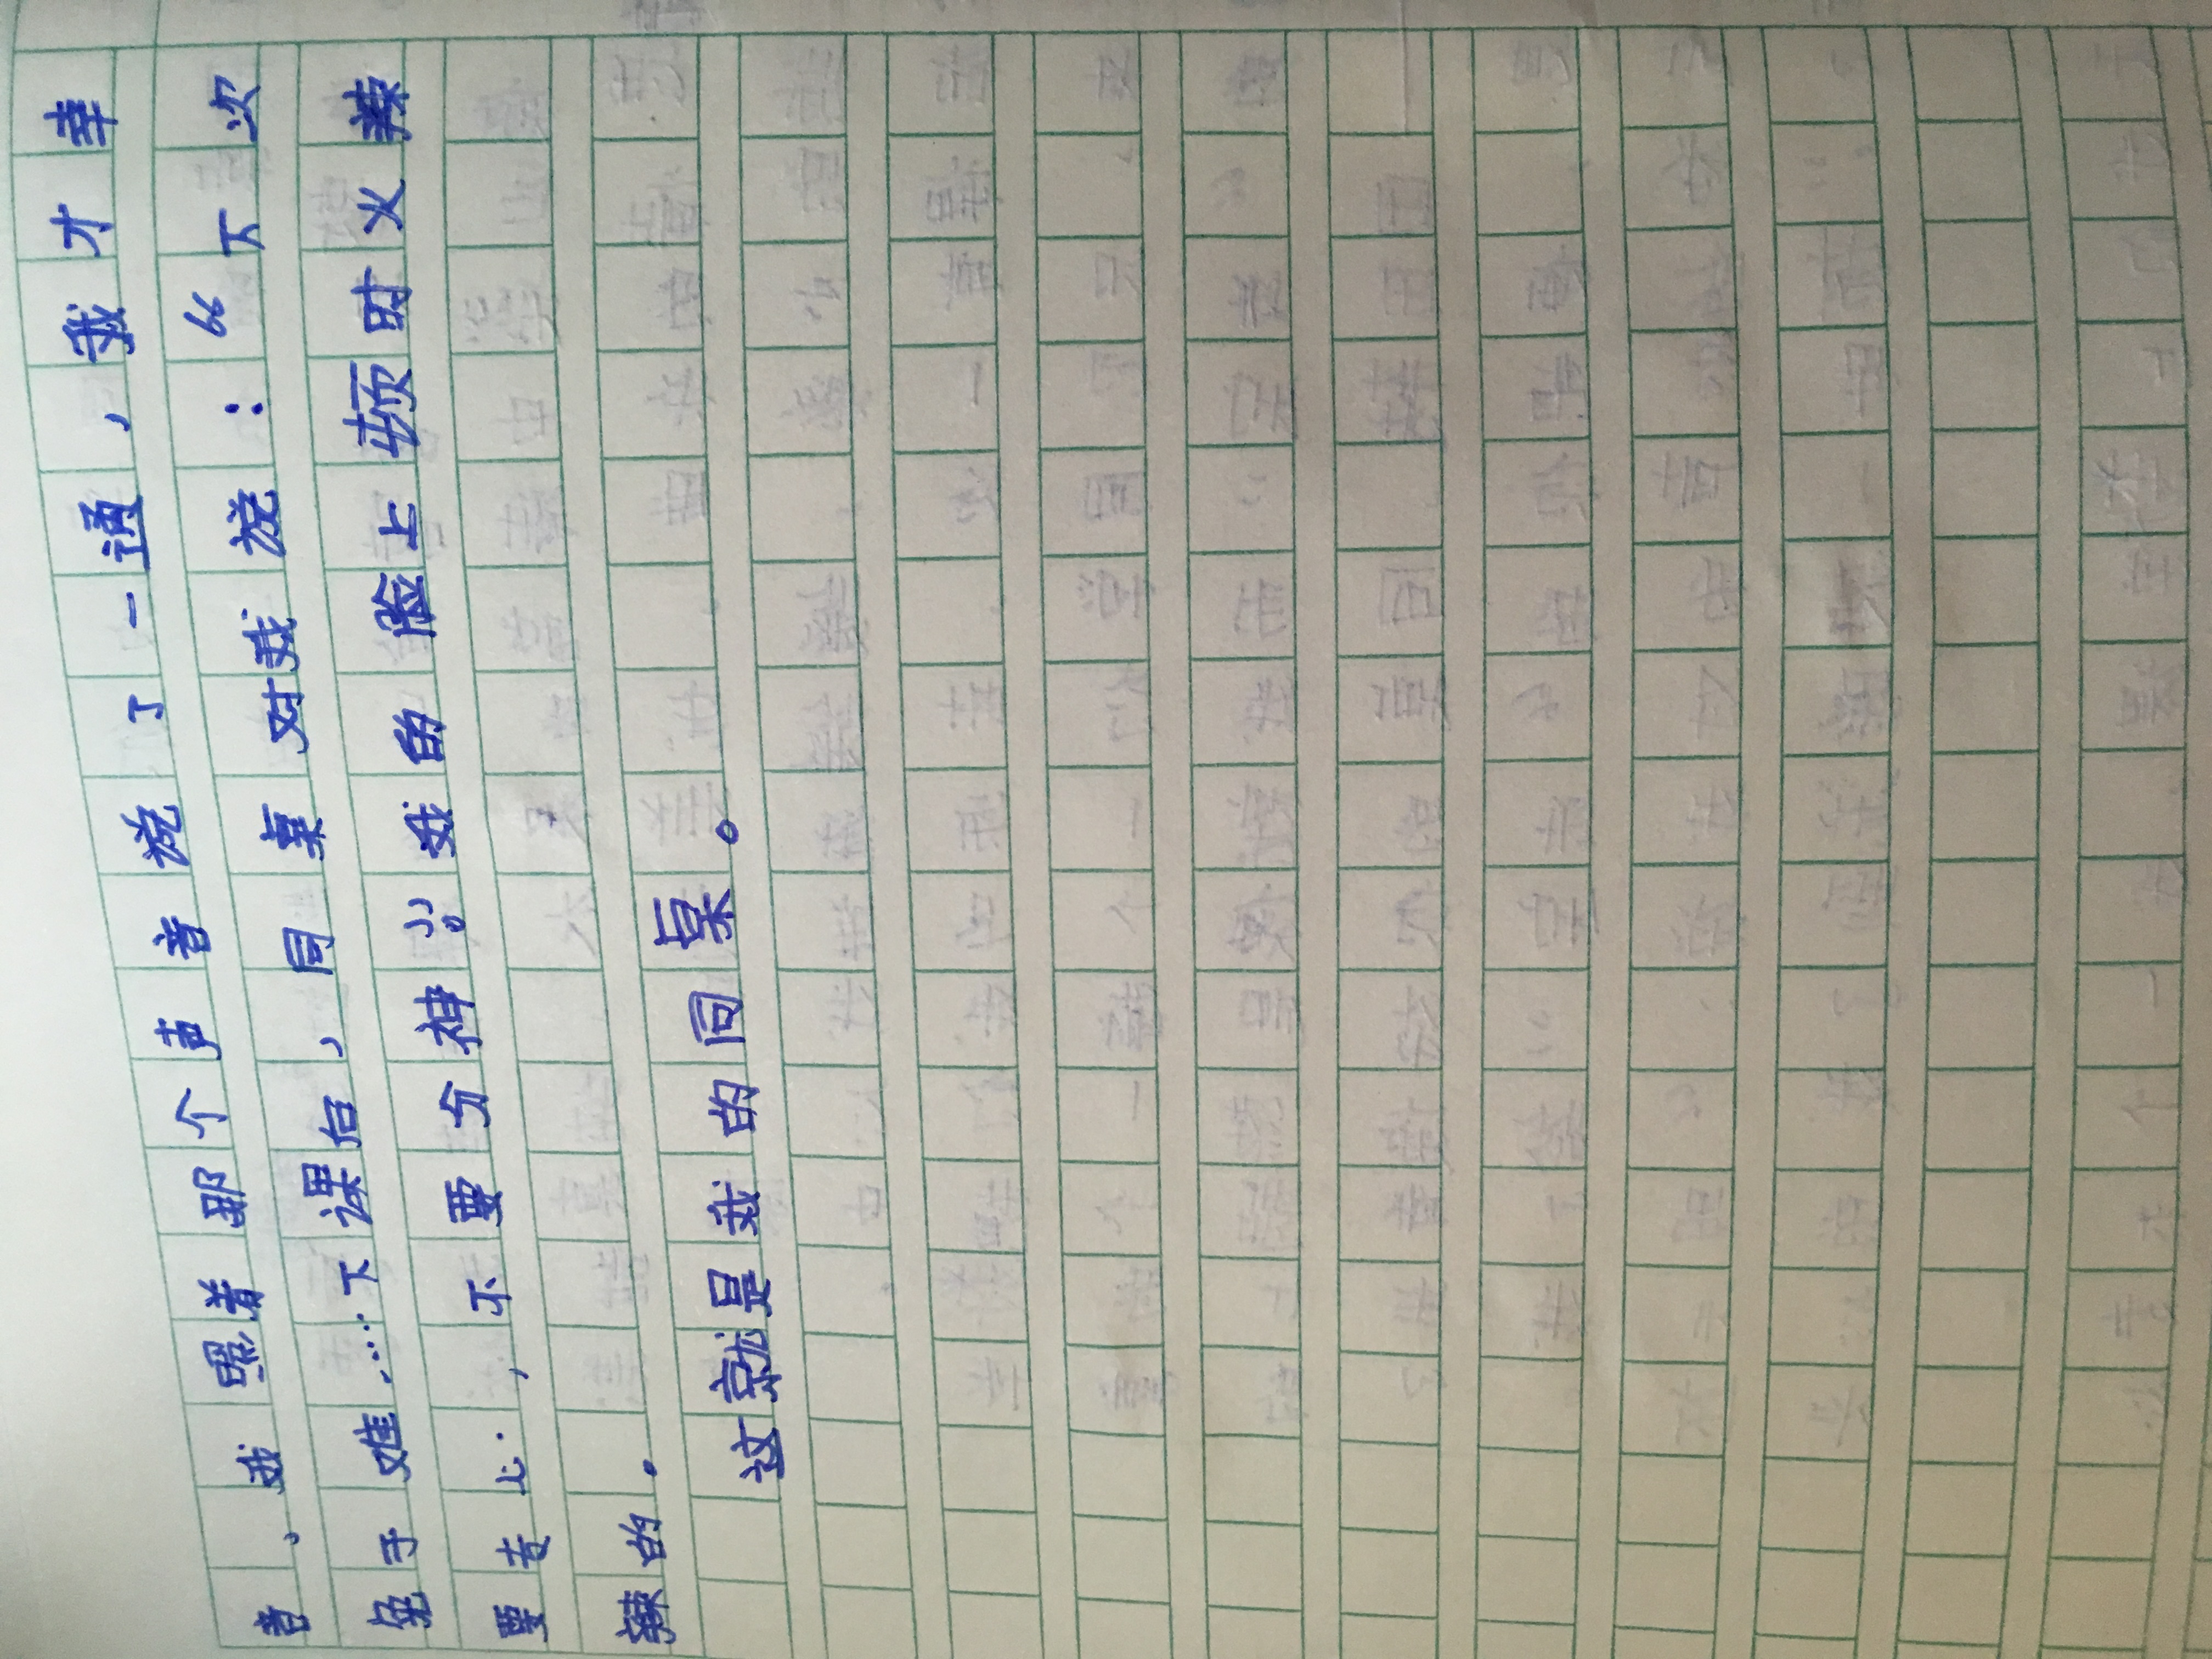 音，我照着那个声音说了一通，我才幸
免于难……下课后，同桌对我说：“下次
要专心，不要分神。”我的脸上顿时火辣
辣的。
这就是我的同桌。